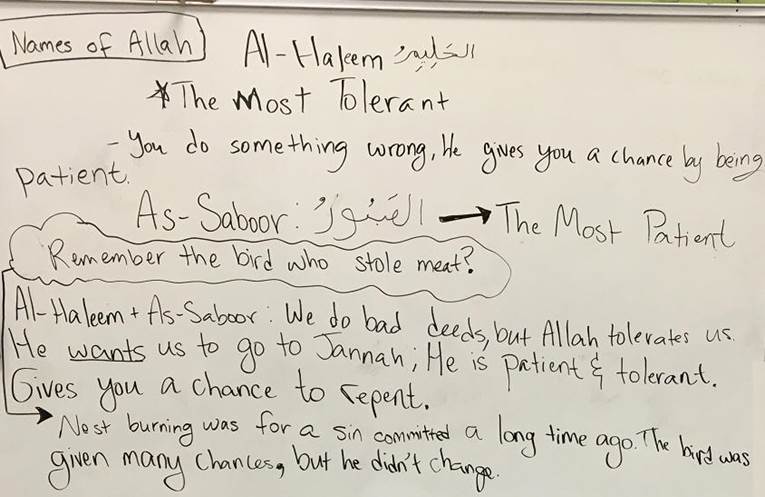 Names of Allah
Al-Haleem الحَلِيمُ
*The Most Tolerant
- You do something wrong, He gives you a chance by being
patient.
As-Saboor: الصَبُورُ → The Most Patient
Remember the bird who stole meat?
Al-Haleem + As-Saboor: We do bad deeds, but Allah tolerates us.
He wants us to go to Jannah; He is patient & tolerant.
Gives you a chance to repent.
→ Nest burning was for a sin committed a long time ago. The bird was
given many chances, but he didn't change.